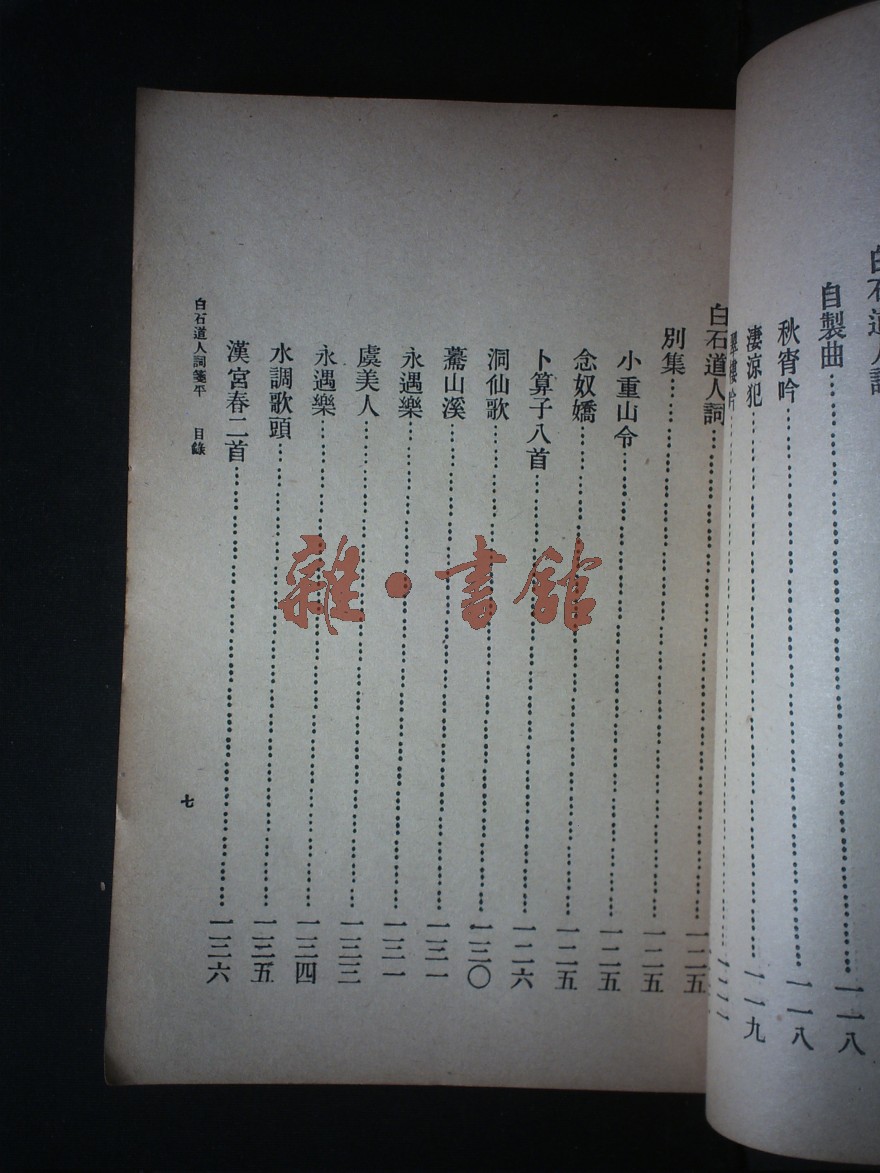 白石道人詞
自製曲……一一八
秋宵吟……一一八
淒涼犯……一一九
翠樓吟……
白石道人詞……一二五
別集……一二五
小重山令……一二五
念奴嬌……一二五
卜算子八首……一二六
洞仙歌……一三〇
驀山溪……一三一
永遇樂……一三一
虞美人……一三三
永遇樂……一三四
水調歌頭……一三五
漢宮春二首……一三六
白石道人詞箋平 目錄
七
雜·書館